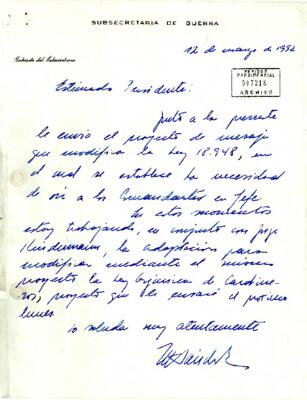 SUBSECRETARIA DE GUERRA
Gabinete del Subsecretario
12 de marzo de 1992
PERIODO
PRESIDENCIAL
007216
ARCHIVO
Estimado Presidente:
Junto a la presente
le envío el proyecto de mensaje
que modifica la Ley 18.948, en
el cual se establece la necesidad
de oír a los Comandantes en Jefe
En estos momentos
estoy trabajando, en conjunto con Jorge
la adaptación para
modificar mediante el mismo
proyecto la Ley Orgánica de Carabine-
ros, proyecto que le enviaré el próximo
lunes
Lo saluda muy atentamente